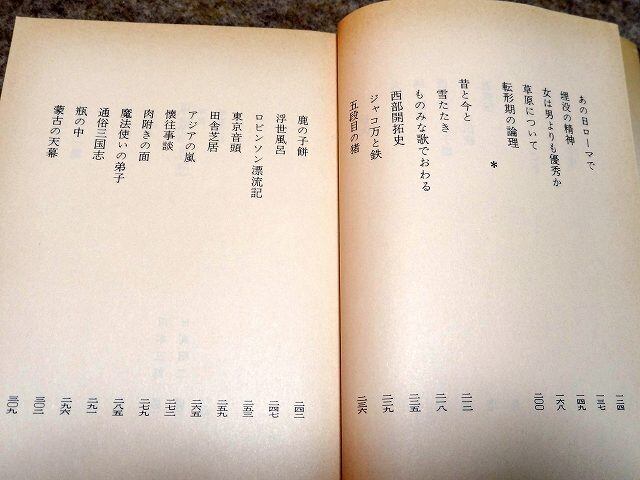 あの日ローマで
埋没の精神
女は男よりも優秀か
草原について
転形期の論理
＊
昔と今と
雪たたき
ものみな歌でおわる
西部開拓史
ジャコ万と鉄
五段目の猪
一二四
一三七
一四九
一六八
二〇〇
二一二
二一八
二二五
二二九
二三六
鹿の子餅
浮世風呂
ロビンソン漂流記
東京音頭
田舎芝居
アジアの嵐
懐往事談
肉附きの面
魔法使いの弟子
通俗三国志
瓶の中
蒙古の天幕
二四二
二四七
二五三
二五九
二六五
二七二
二七九
二八五
二九一
二九六
三〇三
三〇九